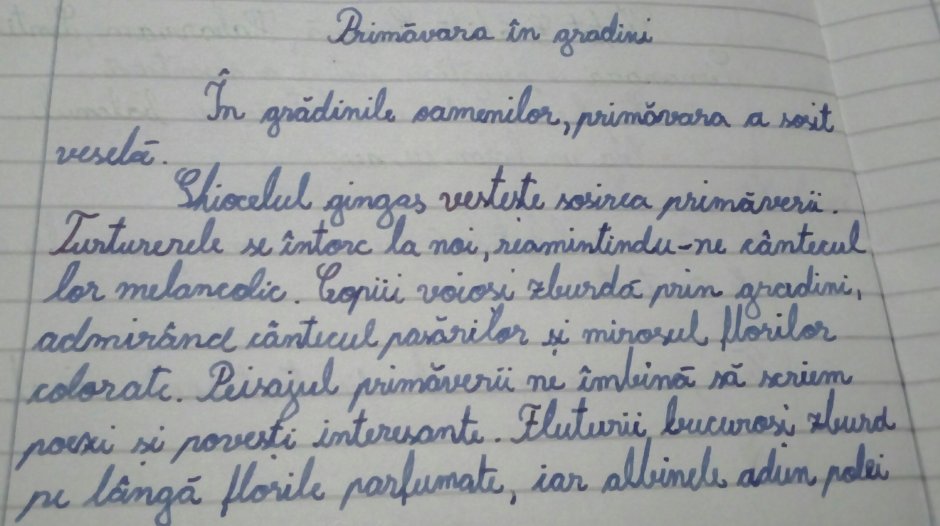 Primăvara în gradini
În grădinile oamenilor, primăvara a sosit
veselă.
Ghiocelul gingaș vestește sosirea primăverii.
Turturerele se întorc la noi, reamintindu-ne cântecul
lor melancolic. Copiii voioși zburdă prin gradini,
admirând cântecul pasărilor și mirosul florilor
colorate. Peisajul primăverii ne îmbină să scriem
poezii și povești interesante. Fluturii bucuroși zburd
pe lângă florile parfumate, iar albinele adun polei